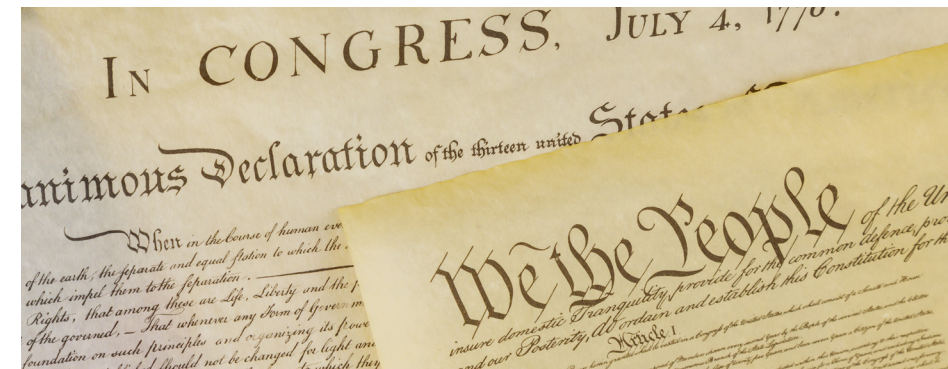 In CONGRESS, July 4, 1776.
animous Declaration of the thirteen united States
When in the Course of human eve
of the earth, the separate and equal station to which the
which impel them to the separation.
Rights, that among these are Life, Liberty and the p
of the governed, — That whenever any Form of Governm
foundation on such principles and organizing its powe
should not be changed for light an
to which they
We the People of the Un
insure domestic Tranquility, provide for the common defence, pro
and our Posterity, do ordain and establish this Constitution for th
Article I